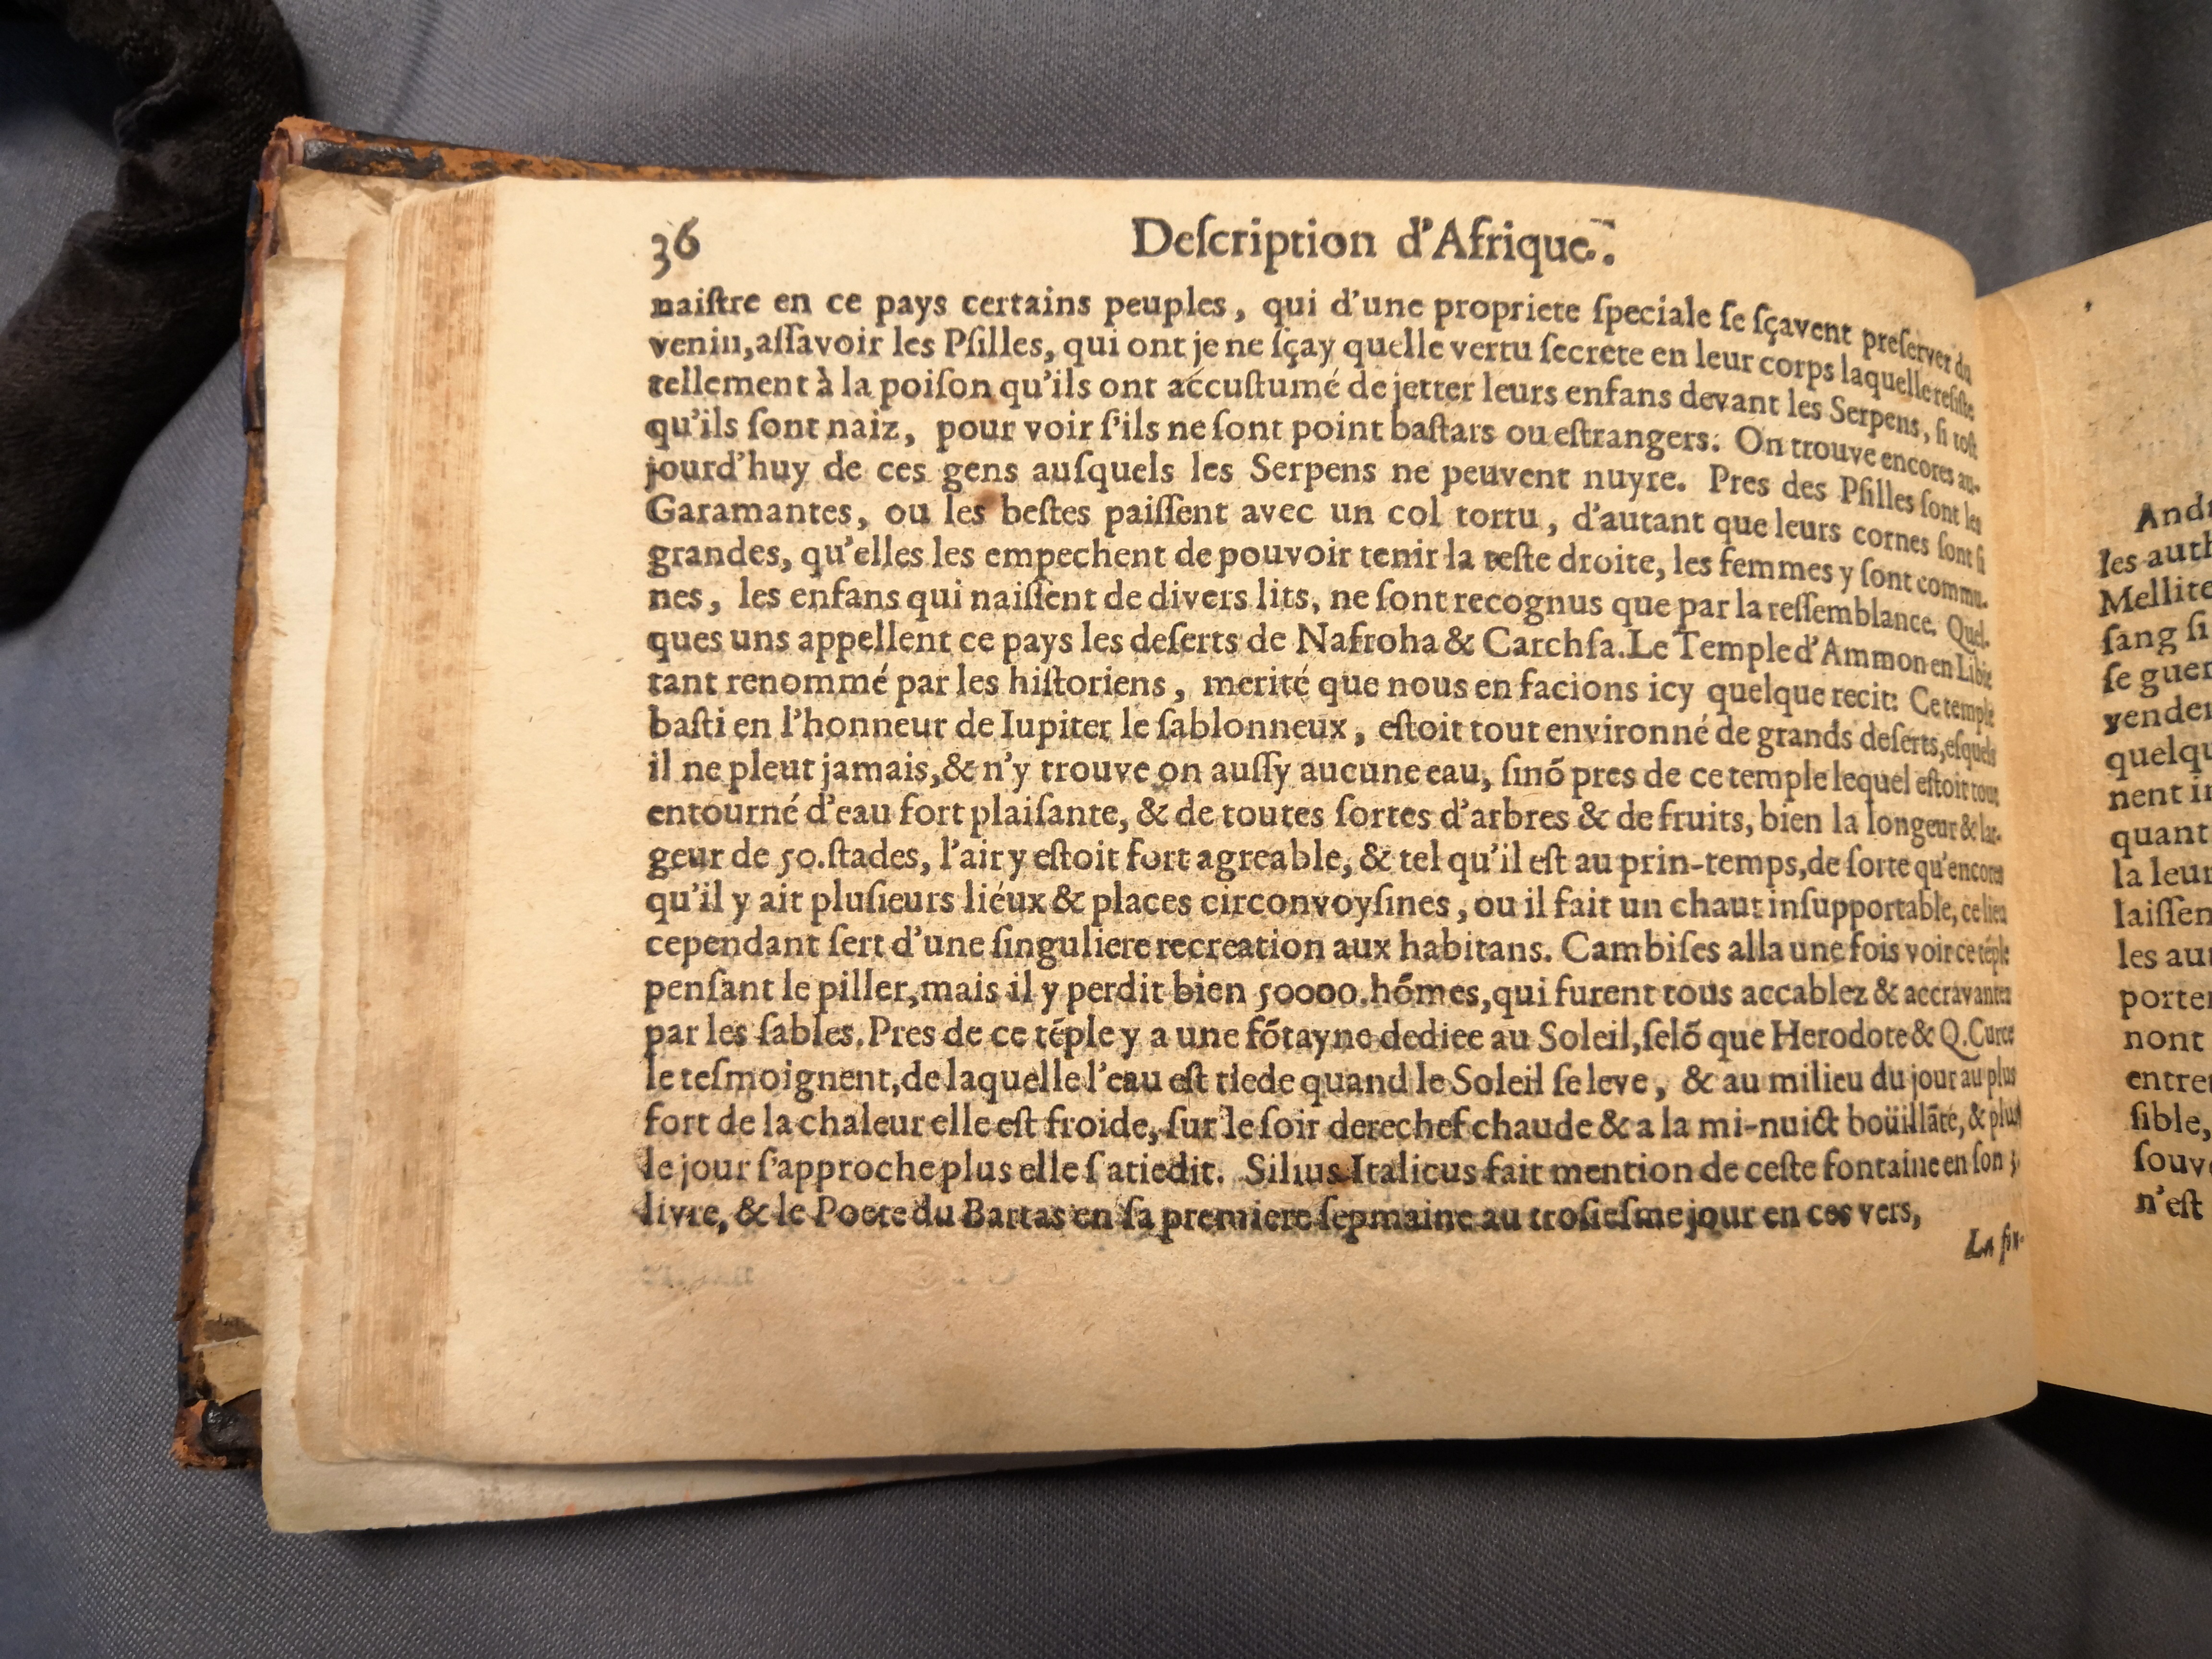 36 Deſcription d'Afrique.
naiſtre en ce pays certains peuples, qui d'une propriete ſpeciale ſe ſçavent preſerver du
venin, aſſavoir les Pſilles, qui ont je ne ſçay quelle vertu ſecrete en leur corps laquelle reſiſte
tellement à la poiſon qu'ils ont accuſtumé de jetter leurs enfans devant les Serpens, ſi toſt
qu'ils ſont naiz, pour voir ſ'ils ne ſont point baſtars ou eſtrangers. On trouve encores au-
jourd'huy de ces gens auſquels les Serpens ne peuvent nuyre. Pres des Pſilles ſont les
Garamantes, ou les beſtes paiſſent avec un col tortu, d'autant que leurs cornes ſont ſi
grandes, qu'elles les empechent de pouvoir tenir la teſte droite, les femmes y ſont commu-
nes, les enfans qui naiſſent de divers lits, ne ſont recognus que par la reſſemblance. Quel-
ques uns appellent ce pays les deſerts de Nafroha & Carchſa. Le Temple d'Ammon en Libie
tant renommé par les hiſtoriens, merité que nous en facions icy quelque recit: Ce temple
baſti en l'honneur de Iupiter le ſablonneux, eſtoit tout environné de grands deſerts, eſquels
il ne pleut jamais, & n'y trouve on auſſy aucune eau, ſinō pres de ce temple lequel eſtoit tout
entourné d'eau fort plaiſante, & de toutes ſortes d'arbres & de fruits, bien la longeur & lar-
geur de 50. ſtades, l'air y eſtoit fort agreable, & tel qu'il eſt au prin-temps, de ſorte qu'encores
qu'il y ait pluſieurs liéux & places circonvoyſines, ou il fait un chaut inſupportable, ce lieu
cependant ſert d'une ſinguliere recreation aux habitans. Cambiſes alla une fois voir ce tēple
penſant le piller, mais il y perdit bien 50000. hōmes, qui furent tous accablez & accravantez
par les ſables. Pres de ce tēple y a une fōtayne dediee au Soleil, ſelō que Herodote & Q. Curce
le teſmoignent, de laquelle l'eau eſt tiede quand le Soleil ſe leve, & au milieu du jour au plus
fort de la chaleur elle eſt froide, ſur le ſoir derechef chaude & a la mi-nuict boüillāte, & plus
le jour ſ'approche plus elle ſ'atiedit. Silius Italicus fait mention de ceſte fontaine en ſon 3.
livre, & le Poete du Bartas en ſa premiere ſepmaine au troſieſme jour en ces vers,
La
les
Mellite
ſang ſi
ſe
quant
la leur
les
nont
ſible,
n'eſt